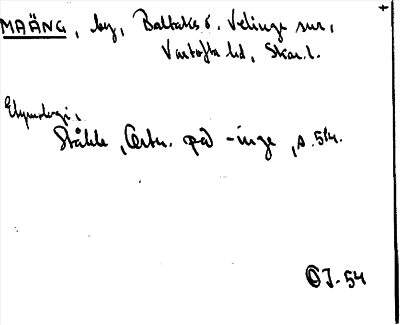 +
MAÄNG, by, Baltaks s. Velinge sn,
Vartofta hd, Skar.l.
Etymologi:
Ståhle, Ortn. på -inge, s. 514.
OJ-54